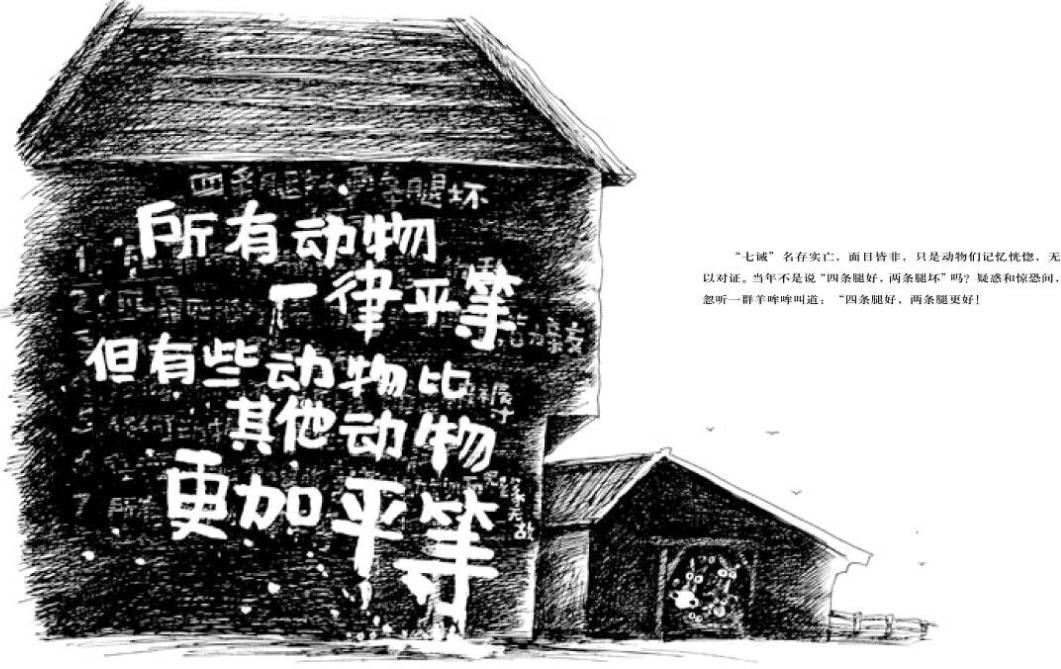 四条腿好 两条腿坏
所有动物
一律平等
但有些动物比
其他动物
更加平等
“七诫”名存实亡，面目皆非，只是动物们记忆恍惚，无
以对证。当年不是说“四条腿好，两条腿坏”吗？疑惑和惊恐间，
忽听一群羊哞哞叫道：“四条腿好，两条腿更好！